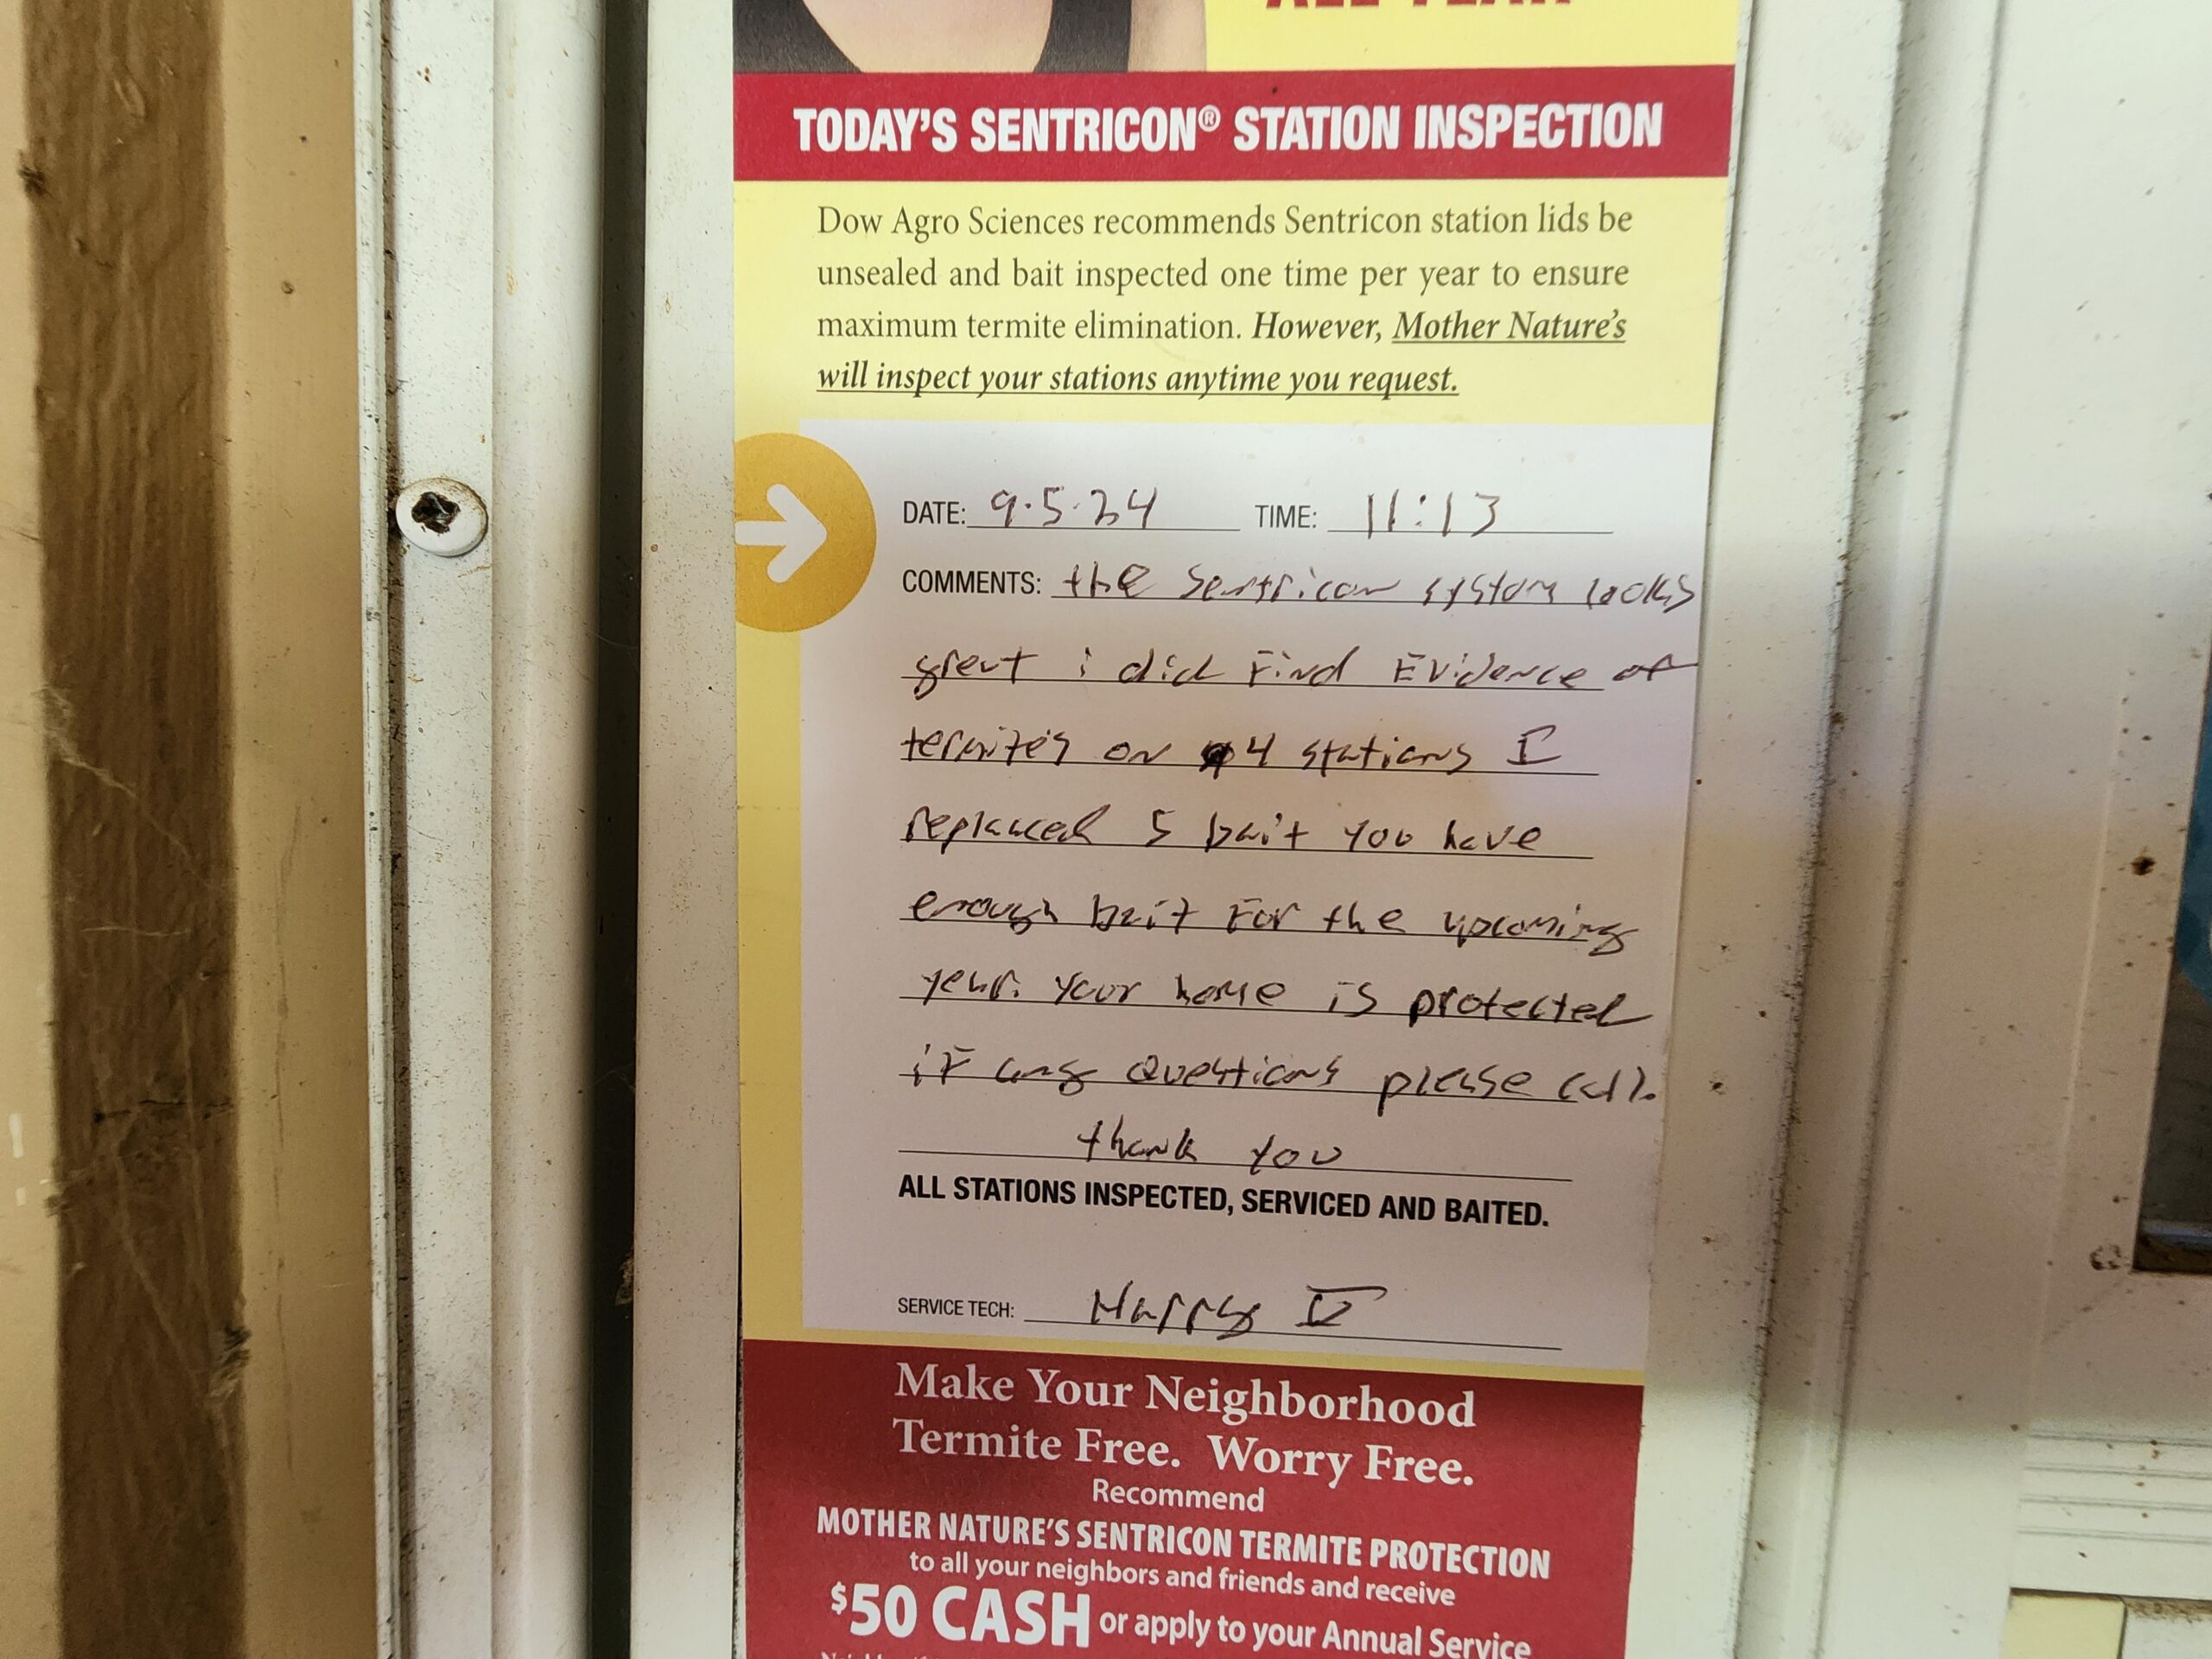 TODAY'S SENTRICON® STATION INSPECTION
Dow Agro Sciences recommends Sentricon station lids be
unsealed and bait inspected one time per year to ensure
maximum termite elimination. However, Mother Nature's
will inspect your stations anytime you request.
DATE: 9.5.24 TIME: 11:13
COMMENTS: the Sentricon system looks
great i did Find Evidence of
termites on 4 stations I
replaced 5 bait you have
enough bait For the upcoming
year. Your home is protected
iF any Questions please call.
thank you
ALL STATIONS INSPECTED, SERVICED AND BAITED.
SERVICE TECH: V
Make Your Neighborhood
Termite Free. Worry Free.
Recommend
MOTHER NATURE'S SENTRICON TERMITE PROTECTION
to all your neighbors and friends and receive
$50 CASH or apply to your Annual Service